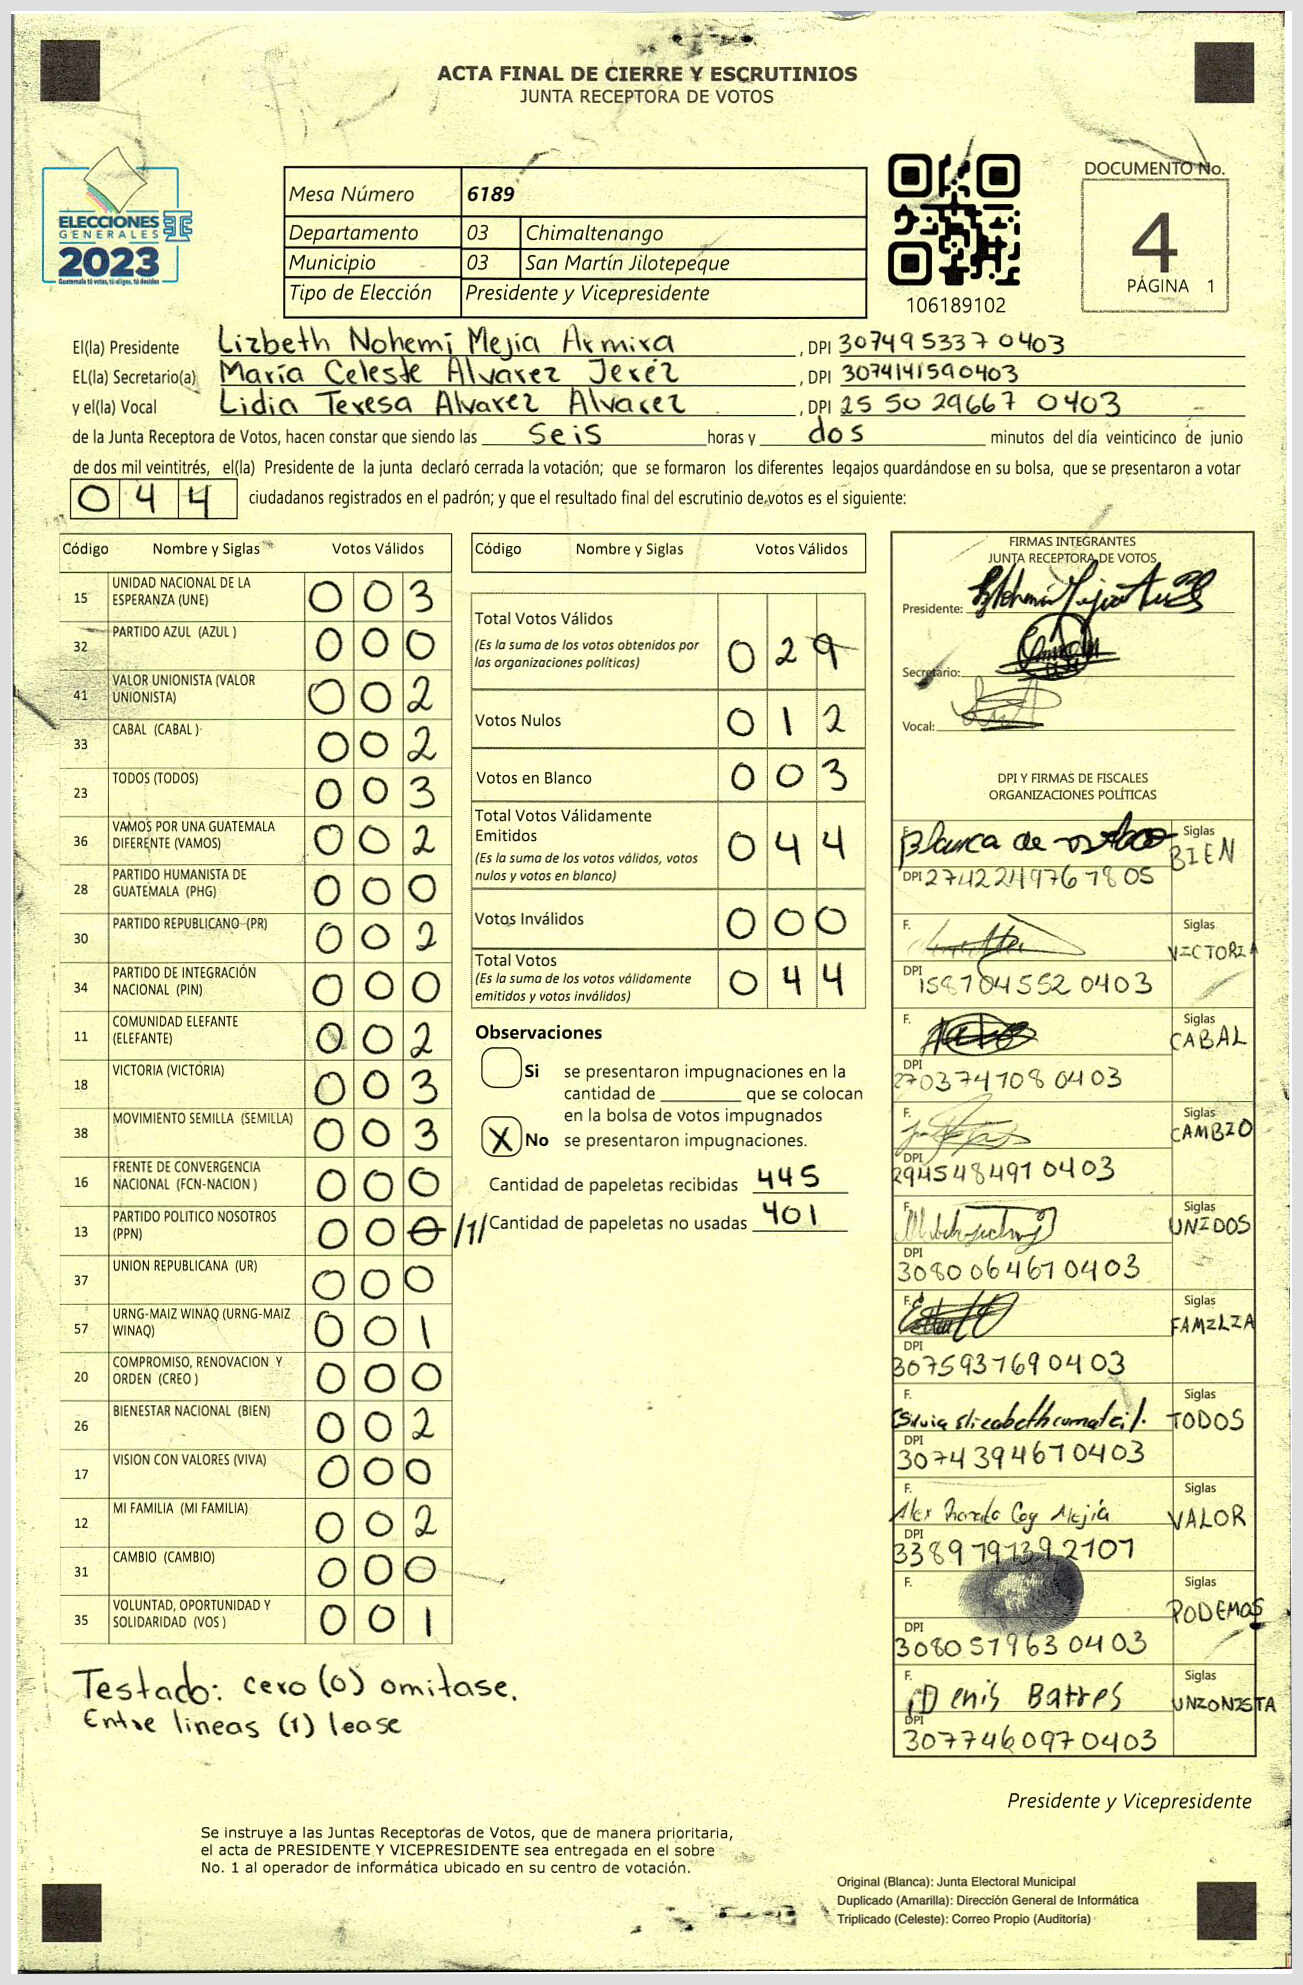 ACTA FINAL DE CIERRE Y ESCRUTINIOS
JUNTA RECEPTORA DE VOTOS
ELECCIONES
GENERALES
2023
Guatemala tú votas, tú eliges, tú decides
Mesa Número 6189
Departamento 03 Chimaltenango
Municipio 03 San Martín Jilotepeque
Tipo de Elección Presidente y Vicepresidente
106189102
DOCUMENTO No.
4
PÁGINA 1
El(la) Presidente Lizbeth Nohemi Mejia Armira , DPI 307495337 0403
EL(la) Secretario(a) María Celeste Alvarez Jeréz , DPI 3074141590403
y el(la) Vocal Lidia Teresa Alvarez Alvarez , DPI 25 50 29667 0403
de la Junta Receptora de Votos, hacen constar que siendo las seis horas y dos minutos del día veinticinco de junio
de dos mil veintitrés, el(la) Presidente de la junta declaró cerrada la votación; que se formaron los diferentes legajos guardándose en su bolsa, que se presentaron a votar
044 ciudadanos registrados en el padrón; y que el resultado final del escrutinio de votos es el siguiente:
Código Nombre y Siglas Votos Válidos
15 UNIDAD NACIONAL DE LA ESPERANZA (UNE) 003
32 PARTIDO AZUL (AZUL ) 000
41 VALOR UNIONISTA (VALOR UNIONISTA) 002
33 CABAL (CABAL ) 002
23 TODOS (TODOS) 003
36 VAMOS POR UNA GUATEMALA DIFERENTE (VAMOS) 002
28 PARTIDO HUMANISTA DE GUATEMALA (PHG) 000
30 PARTIDO REPUBLICANO (PR) 002
34 PARTIDO DE INTEGRACIÓN NACIONAL (PIN) 000
11 COMUNIDAD ELEFANTE (ELEFANTE) 002
18 VICTORIA (VICTORIA) 003
38 MOVIMIENTO SEMILLA (SEMILLA) 003
16 FRENTE DE CONVERGENCIA NACIONAL (FCN-NACION ) 000
13 PARTIDO POLITICO NOSOTROS (PPN) 000 /1/
37 UNION REPUBLICANA (UR) 000
57 URNG-MAIZ WINAQ (URNG-MAIZ WINAQ) 001
20 COMPROMISO, RENOVACION Y ORDEN (CREO ) 000
26 BIENESTAR NACIONAL (BIEN) 002
17 VISION CON VALORES (VIVA) 000
12 MI FAMILIA (MI FAMILIA) 002
31 CAMBIO (CAMBIO) 000
35 VOLUNTAD, OPORTUNIDAD Y SOLIDARIDAD (VOS ) 001
Testado: cero (0) omitase.
Entre lineas (1) lease
Código Nombre y Siglas Votos Válidos
Total Votos Válidos 029
(Es la suma de los votos obtenidos por
las organizaciones políticas)
Votos Nulos 012
Votos en Blanco 003
Total Votos Válidamente
Emitidos 044
(Es la suma de los votos válidos, votos
nulos y votos en blanco)
Votos Inválidos 000
Total Votos 044
(Es la suma de los votos válidamente
emitidos y votos inválidos)
Observaciones
Si se presentaron impugnaciones en la
cantidad de que se colocan
en la bolsa de votos impugnados
X No se presentaron impugnaciones.
Cantidad de papeletas recibidas 445
Cantidad de papeletas no usadas 401
FIRMAS INTEGRANTES
JUNTA RECEPTORA DE VOTOS
Presidente:
Secretario:
Vocal:
DPI Y FIRMAS DE FISCALES
ORGANIZACIONES POLÍTICAS
F. Blanca de Siglas BIEN
DPI 2742249767805
F. Siglas VICTORIA
DPI 158704552 0403
F. Siglas CABAL
DPI 270374708 0403
F. Siglas CAMBIO
DPI 294548491 0403
F. Siglas UNIDOS
DPI 308006467 0403
F. Siglas FAMILIA
DPI 307593769 0403
F. Silvia Elizabeth Siglas TODOS
DPI 307439467 0403
F. Alex Coy Mejía Siglas VALOR
DPI 3389797392107
F. Siglas PODEMOS
DPI 308057963 0403
F. Denis Barres Siglas UNIONISTA
DPI 3077460970403
Presidente y Vicepresidente
Se instruye a las Juntas Receptoras de Votos, que de manera prioritaria,
el acta de PRESIDENTE Y VICEPRESIDENTE sea entregada en el sobre
No. 1 al operador de informática ubicado en su centro de votación.
Original (Blanca): Junta Electoral Municipal
Duplicado (Amarilla): Dirección General de Informática
Triplicado (Celeste): Correo Propio (Auditoría)